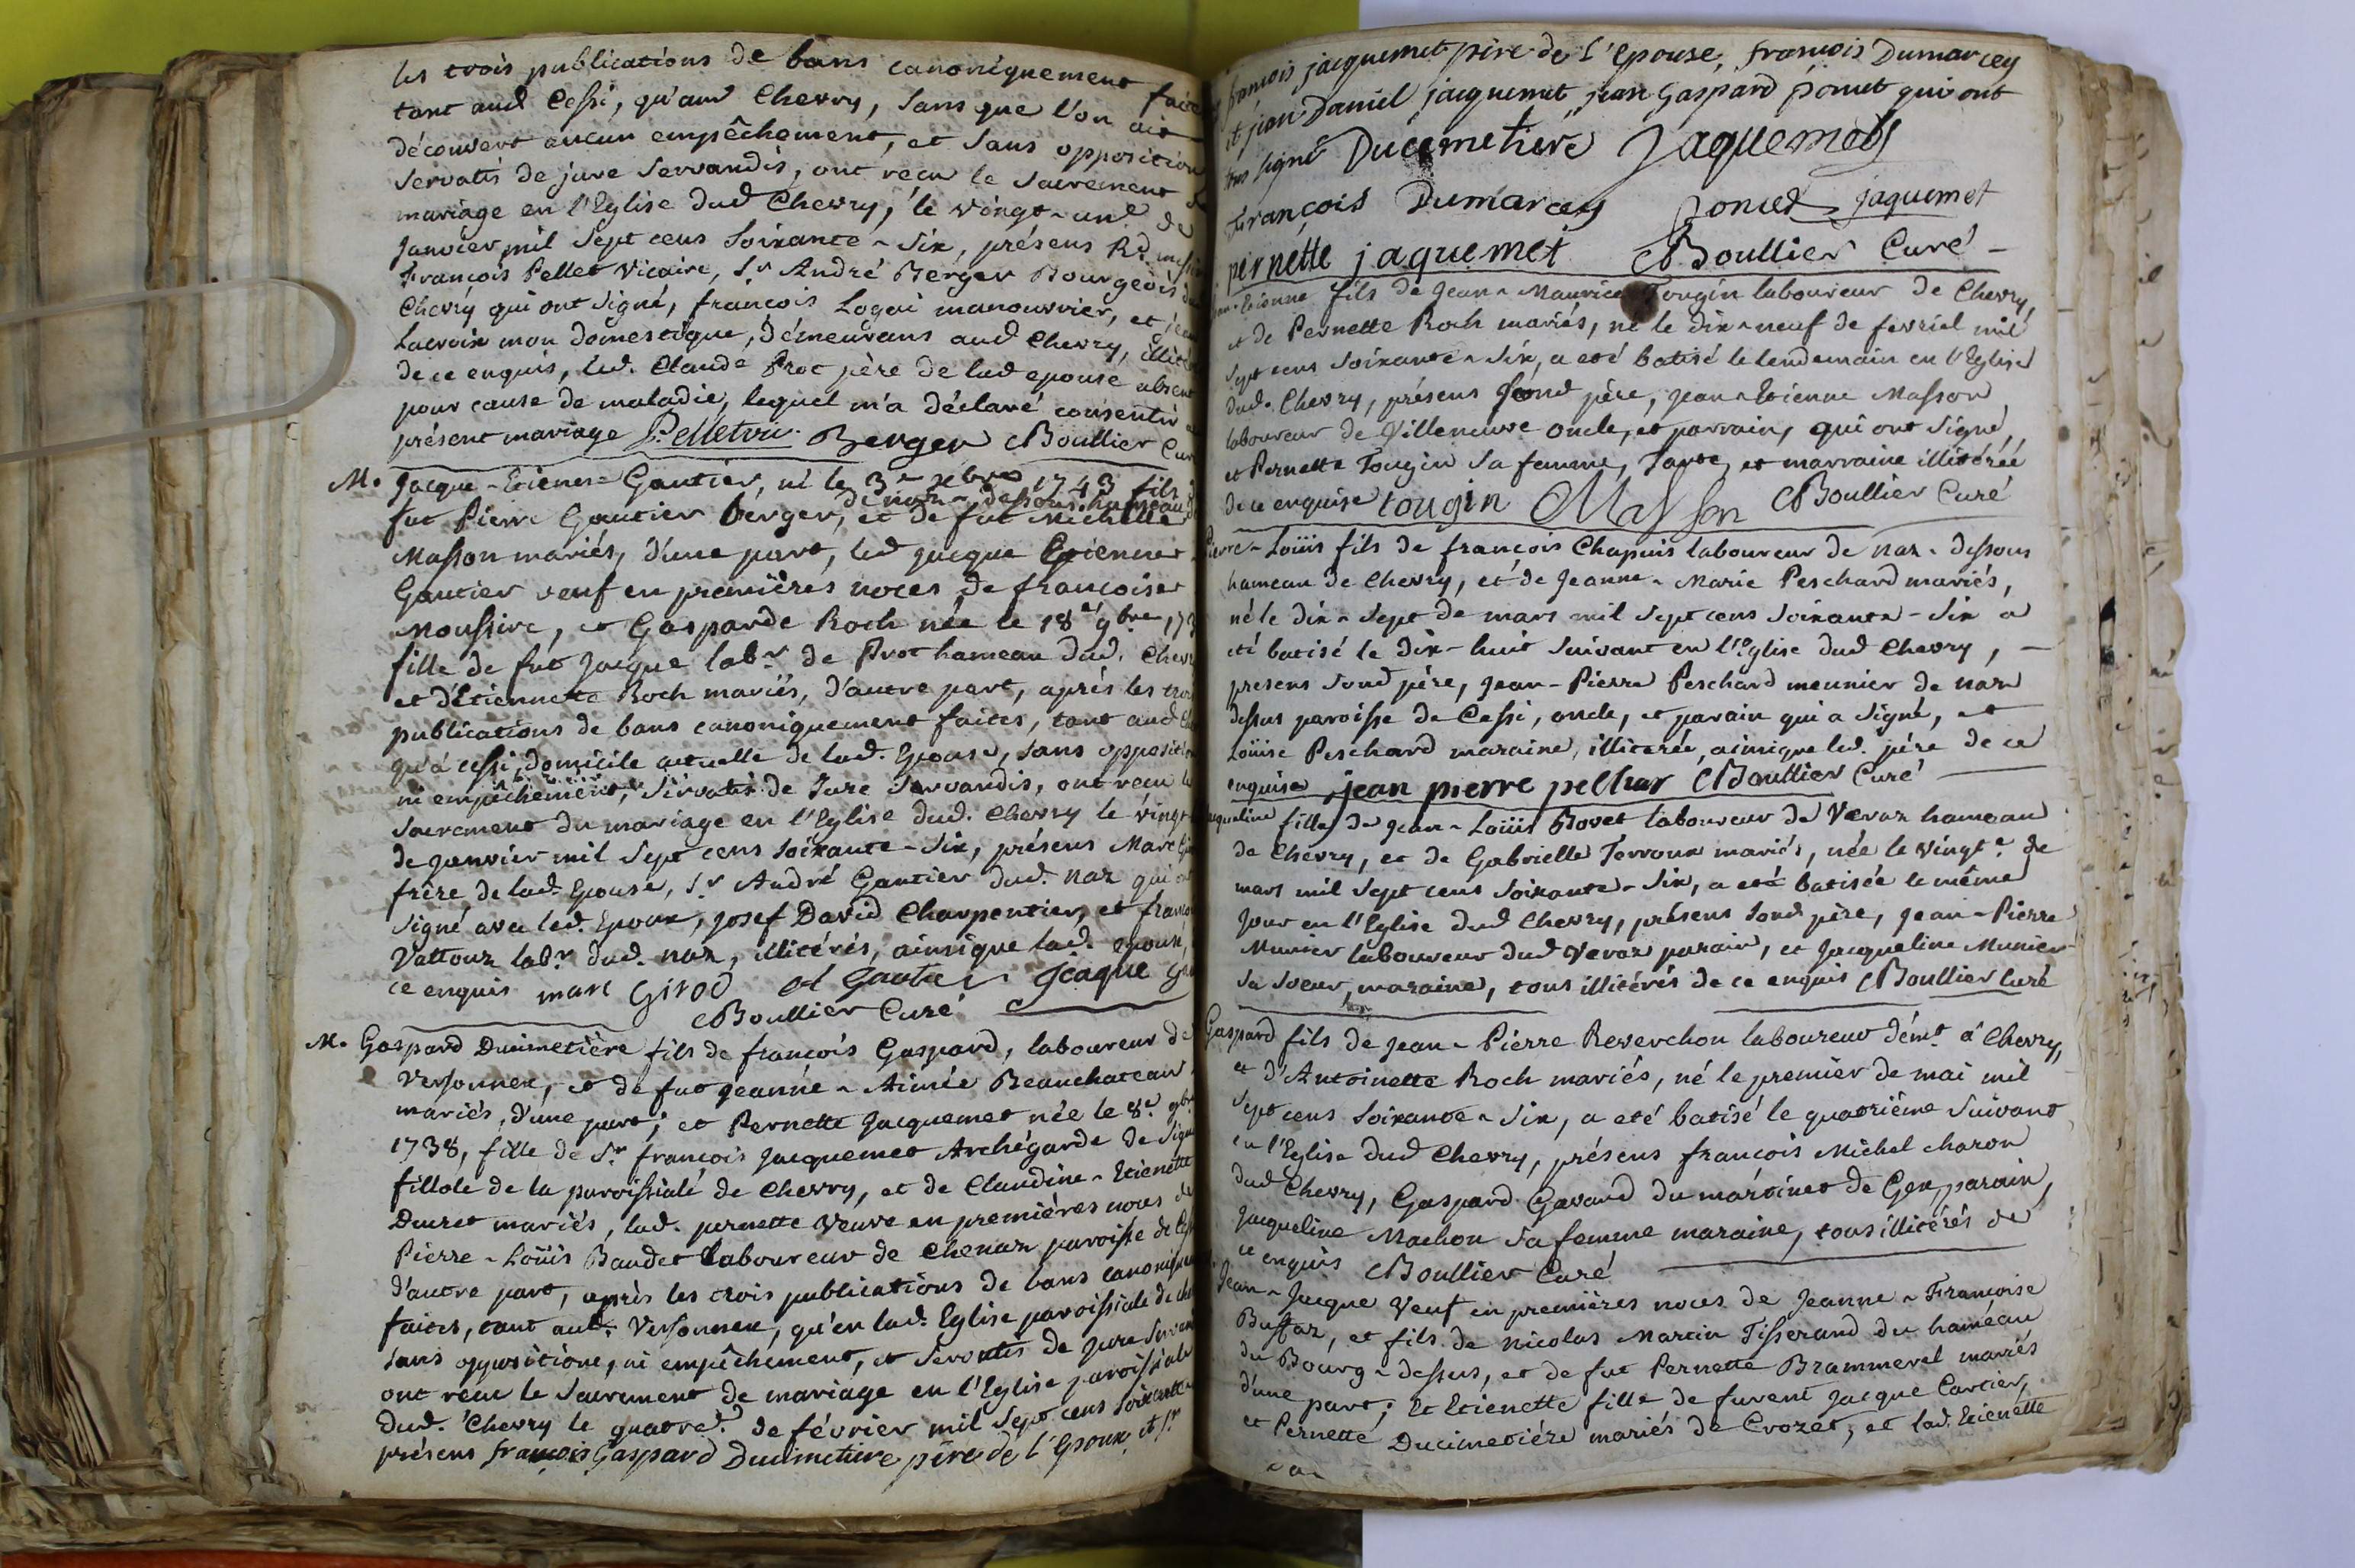 les trois publications de bans canoniquement faite
tant aud Cessi, qu'aud Chevry, sans que l'on ait
découvert aucun empêchement, et sans opposition
servatis de jure servandis, ont reçu le sacrement
mariage en l'Eglise dud Chevry, le vingt-une de
Janvier mil sept cens soixante-six, présens Rd.
François Pellet Vicaire, Sr André Berger Bourgeois
Chevry qui ont signé, françois Logai manouvrier, et
Lacroix mon domestique, démeurans aud Chevry,
de ce enquis, led. Claude Proc père de lad epouse absent
pour cause de maladie, lequel m'a déclaré consentir
présent mariage Pellet vic. Berger Boullier Cur
M. Jacque-Etiene Gautier, né le 3e xbre 1743 fils
de naz-dessous hameau
fut Pierre Gautier berger, et de fut Michelle
Masson mariés, d'une part, led jacque Etienne
Gautier veuf en premières noces de françoise
Moussire, et Gasparde Roch née le 18e 9bre, 173
fille de fut Jacque labr de Prot hameau dud. Chevr
et d'Etiennette Roch mariés, d'autre part, après les troi
publications de bans canoniquement faites, tant aud
qu'à cessi, domicile actuelle de lad. Epouse, sans oppositi
ni empêchement, servatis de Jure servandis, ont reçu le
sacrement du mariage en l'Eglise dud. Chevry le vingt
de janvier mil sept cens soixante-six, présens Marc
frère de lad. Epouse, Sr André Gautier dud. naz qui
signé avec led. Epoux, josef David Charpentier, et franço
Vattoux labr dud. naz, illitérés, ainsique lad. epouse,
ce enquis marc Girod A Gautier Jcaque
Boullier Curé
M. Gaspard Ducimetière fils de françois Gaspard, laboureur de
Versonnex, et de fut jeanne-Aimée Beauchateau
mariés, d'une part; et Pernette Jacquemet née le 8e 9bre
1738, fille de Sr françois Jacquemet Archégarde de
fillole de la paroissiale de Chevry, et de Claudine-Etienette
Ducret mariés, lad. pernette veuve en premières noces de
Pierre-Loüis Baudet laboureur de Chenaz paroisse de
d'autre part, après les trois publications de bans canoniquem
faites, tant aud. Versonnex, qu'en lad. Eglise paroissiale de
sans opposition, ni empêchement, et servatis de jure
ont reçu le sacrement de mariage en l'Eglise paroissiale
dud. Chevry le quatre de février mil sept cens soixante
présens françois Gaspard Ducimetière père de l'Epoux, et Sr
françois jacquemet père de l'Epouse, françois Dumarcey
et jean Daniel jacquemet, jean Gaspard poncet qui ont
tous signé Ducimetiere Jaquemet
François Dumarcey poncet jaquemet
pernette jaquemet Boullier Curé
Etienne fils de Jean-Maurice Tougin laboureur de Chevry,
et de Pernette Roch mariés, né le dix-neuf de fevriel mil
sept cens soixante-six, a eté batisé le lendemain en l'Eglise
dud. Chevry, présens sond père, jean-Etienne Masson
laboureur de Villeneuve oncle, et parrain, qui ont signé,
et Pernette Tougin sa femme, tante, et marraine illitérée
de ce enquise tougin Masson Boullier Curé
Pierre-Loüis fils de françois Chapuis laboureur de naz-dessous
hameau de Chevry, et de Jeanne-Marie Peschard mariés,
né le dix-sept de mars mil sept cens soixante-six a
eté batisé le dix-huit suivant en l'Eglise dud Chevry,
presens sond père, jean-Pierre Peschard meunier de naz
dessus paroisse de Cessi, oncle, et parain qui a signé, et
Loüise Peschard maraine, illiterée, ainsique led. père de ce
enquise jean pierre pelhar Boullier Curé
Jacqueline fille de jean-Loüis Bovet laboureur de Veraz hameau
de Chevry, et de Gabrielle Terroux mariés, née le vingte de
mars mil sept cens soixante-six, a eté batisée le même
jour en l'Eglise dud Chevry, présens sond père, jean-Pierre
Munier laboureur dud Veraz parain, et jacqueline Munier
sa soeur, maraine, tous illitérés de ce enquis Boullier Curé
Gaspard fils de jean-Pierre Reverchon laboureur démt à Chevry,
et d'Antoinette Roch mariés, né le premier de mai mil
sept cens soixante-six, a eté batisé le quatrième suivant
en l'Eglise dud Chevry, présens françois Michel charon
dud Chevry, Gaspard Gavard du martinet de Gex parain,
jacqueline Machon sa femme maraine, tous illitérés de
ce enquis Boullier Curé
Jean-Jacque Veuf en premières noces de Jeanne-Françoise
Buffaz, et fils de nicolas Martin Tisserand du hameau
du Bourg-dessus, et de fut Pernette Brammerel mariés
d'une part; Et Etienette fille de furent Jacque Cartier,
et Pernette Ducimetière mariés de Crozet, et lad. Etienette